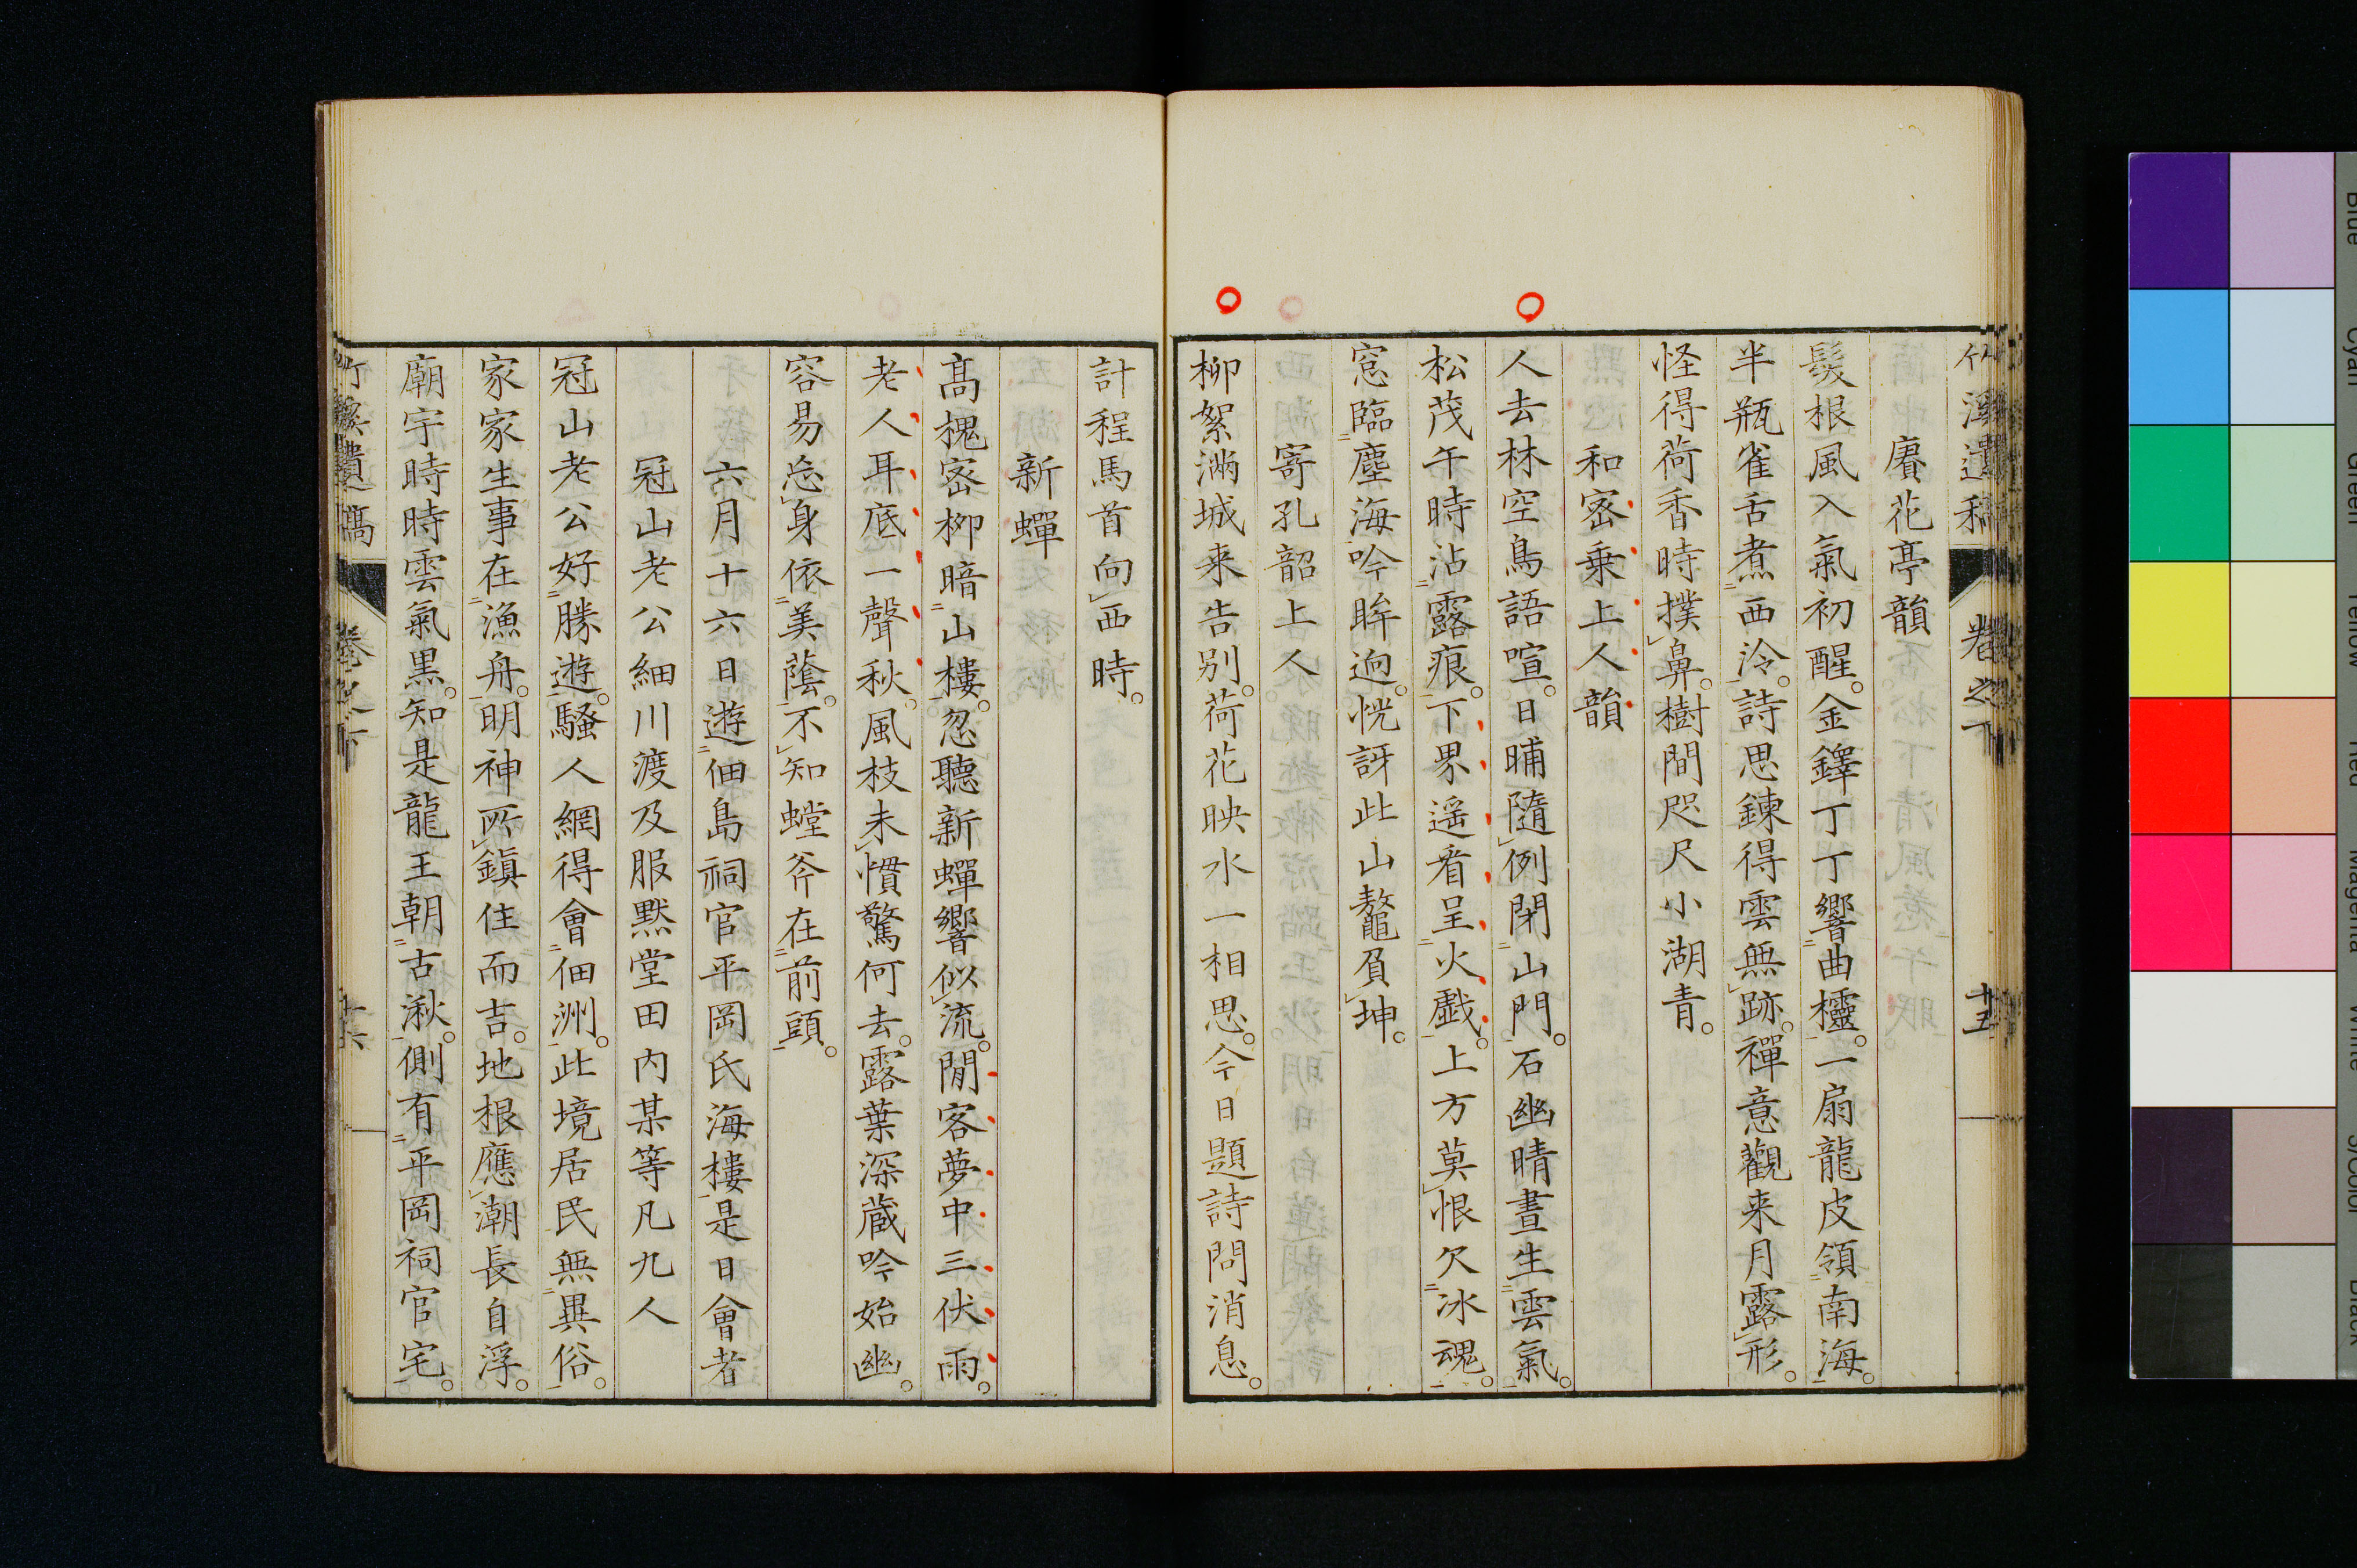 竹溪遺稿 卷之下 十五
賡花亭韻
鬓根風入氣初醒。金鐸丁丁響曲櫺。一扇龍皮領南海。
半瓶雀舌煮西泠。詩思鍊得雲無跡。禪意觀来月露形。
怪得荷香時撲鼻。樹間咫尺小湖青。
和密乗上人韻
人去林空鳥語喧。日晡隨例閉山門。石幽晴晝生雲氣。
松茂午時沾露痕。下界遥看呈火戲。上方莫恨欠冰魂。
窓臨塵海吟眸迥。恍訝此山鼇負坤。
寄孔韶上人
柳絮滿城来告別。荷花映水一相思。今日題詩問消息。
計程馬首向西時。
新蟬
髙槐密柳暗山樓。忽聽新蟬響似流。閒客夢中三伏雨。
老人耳底一聲秋。風枝未慣驚何去。露葉深蔵吟始幽。
容易忘身依美蔭。不知螳斧在前頭。
六月十六日遊佃島祠官平岡氏海樓是日會者
冠山老公細川渡及服黙堂田内某等凡九人
冠山老公好勝遊。騷人網得會佃洲。此境居民無異俗。
家家生事在漁舟。明神所鎮住而吉。地根應潮長自浮。
廟宇時時雲氣黒。知是龍王朝古湫。側有平岡祠官宅。
竹溪遺稿 卷之下 十六